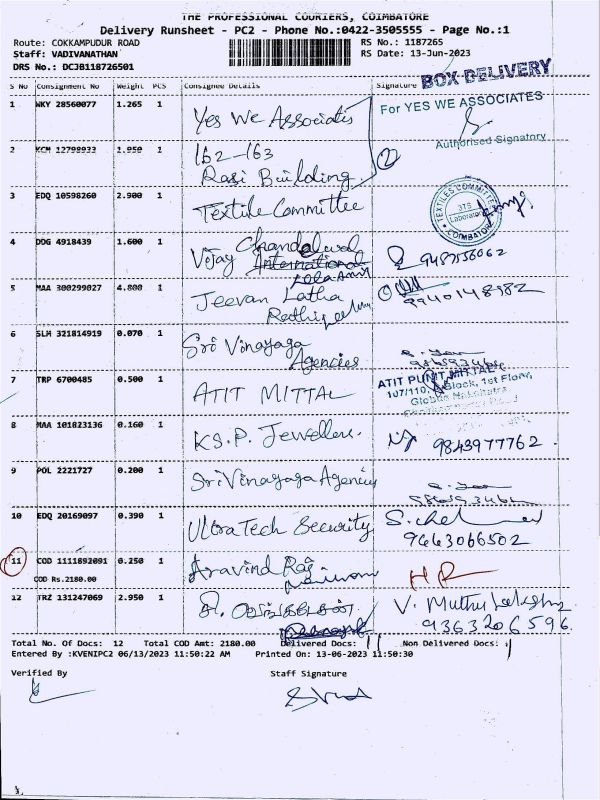 THE PROFESSIONAL COURIERS, COIMBATORE
Delivery Runsheet - PC2 - Phone No.:0422-3505555 - Page No.:1
Route: COKKAMPUDUR ROAD RS No.: 1187265
Staff: VADIVANATHAN RS Date: 13-Jun-2023
DRS No.: DCJB118726501
BOX DELIVERY
S No Consignment No Weight PCS Consignee Details Signature
1 WKY 28560077 1.265 1 Yes We Associates For YES WE ASSOCIATES
Authorised Signatory
2 KCM 12798933 1.950 1 162-163 2
Rasi Building
3 EDQ 10598260 2.900 1 Textile Committee TEXTILES COMMITTEE
Laboratory
COIMBATORE
4 DDG 4918439 1.600 1 Vijay
International 9487556062
5 MAA 300299027 4.800 1 Jeevan Latha 9940148982
6 SLM 321814919 0.070 1 Sri Vinayaga
Agencies
7 TRP 6700485 0.500 1 ATIT MITTAL ATIT PUNIT MITTAL
107/110, Block, 1st Floor,
8 MAA 101823136 0.160 1 K.S.P. Jewellers. 9843977762
9 POL 2221727 0.200 1 Sri Vinayaga Agencies
10 EDQ 20169097 0.390 1 UltraTech Security
9663066502
11 COD 1111892091 0.250 1 Aravind Raj HR
COD Rs.2180.00
12 TRZ 131247069 2.950 1 V. Muthu Lakshmi
9363206596.
Total No. Of Docs: 12 Total COD Amt: 2180.00 Delivered Docs: 11 Non Delivered Docs: 1
Entered By :KVENIPC2 06/13/2023 11:50:22 AM Printed On: 13-06-2023 11:50:30
Verified By Staff Signature